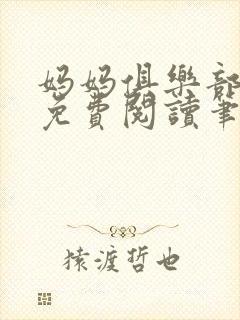 媽媽俱樂部
免費閱讀筆
猿渡哲也